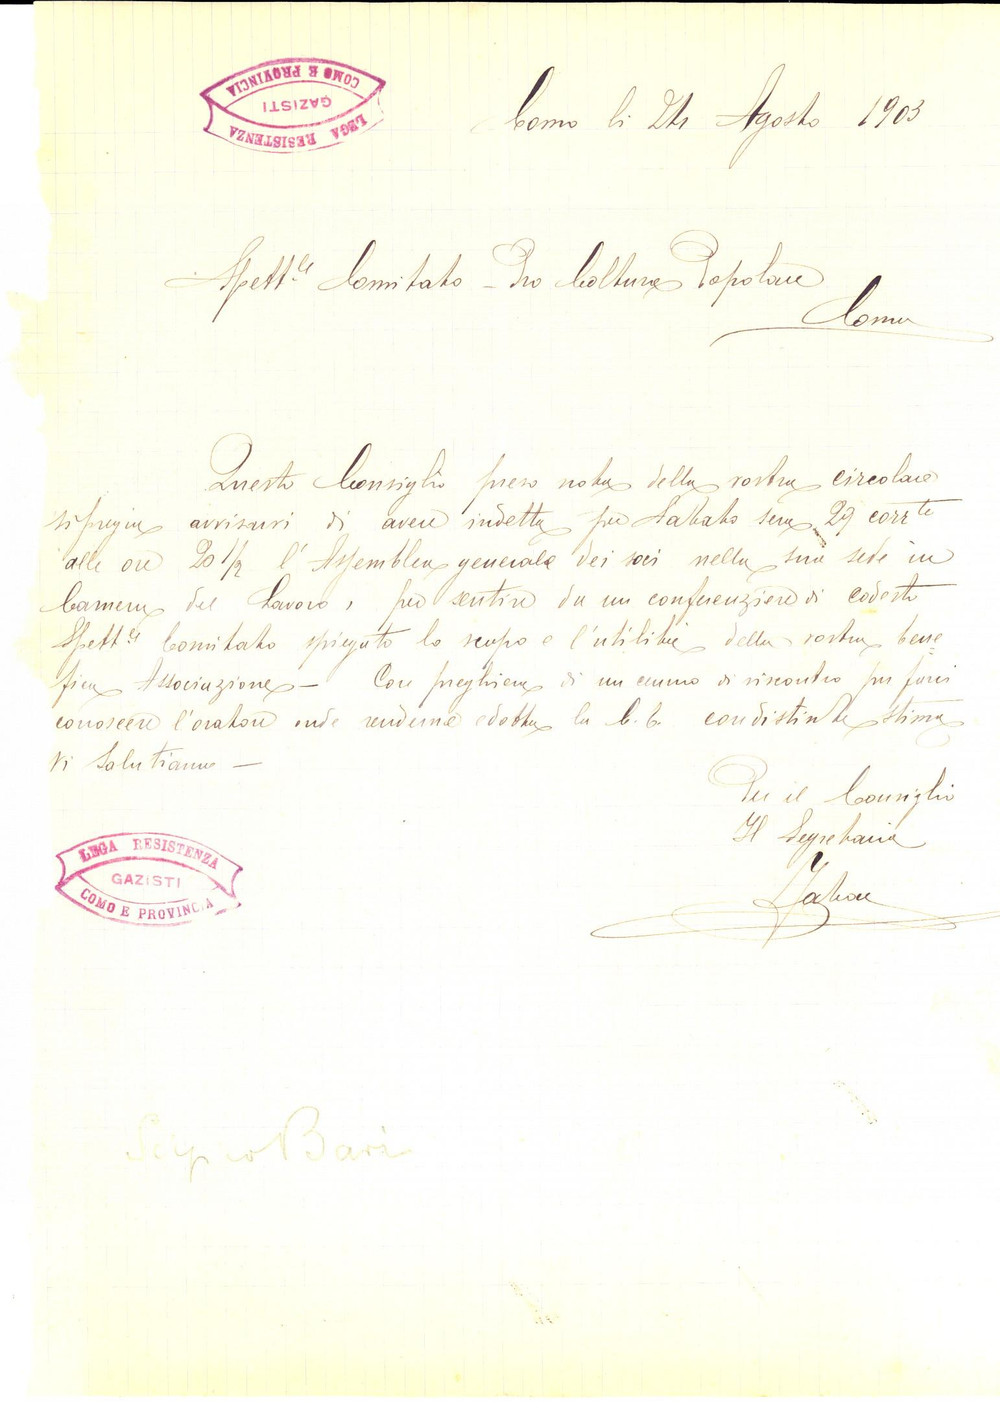 COMO E PROVINCIA
GAZISTI
LEGA RESISTENZA
Como li 24 Agosto 1903
Spett.le Comitato - Pro Coltura Popolare
Como
Questo Consiglio preso nota della vostra circolare
si pregia avvisarvi di avere indetta per Sabato sera 29 corr.te
alle ore 20 1/2 l'Assemblea generale dei soci nella sua sede in
Camera del Lavoro, per sentire da un conferenziere di codesto
Spett.le Comitato spiegato lo scopo e l'utilità della vostra bene=
fica Associazione - Con preghiera di un cenno di riscontro per farci
conoscere l'oratore onde renderne edotta la C. E. con distinta stima
Vi Salutiamo -
Per il Consiglio
Il Segretario
LEGA RESISTENZA
GAZISTI
COMO E PROVINCIA